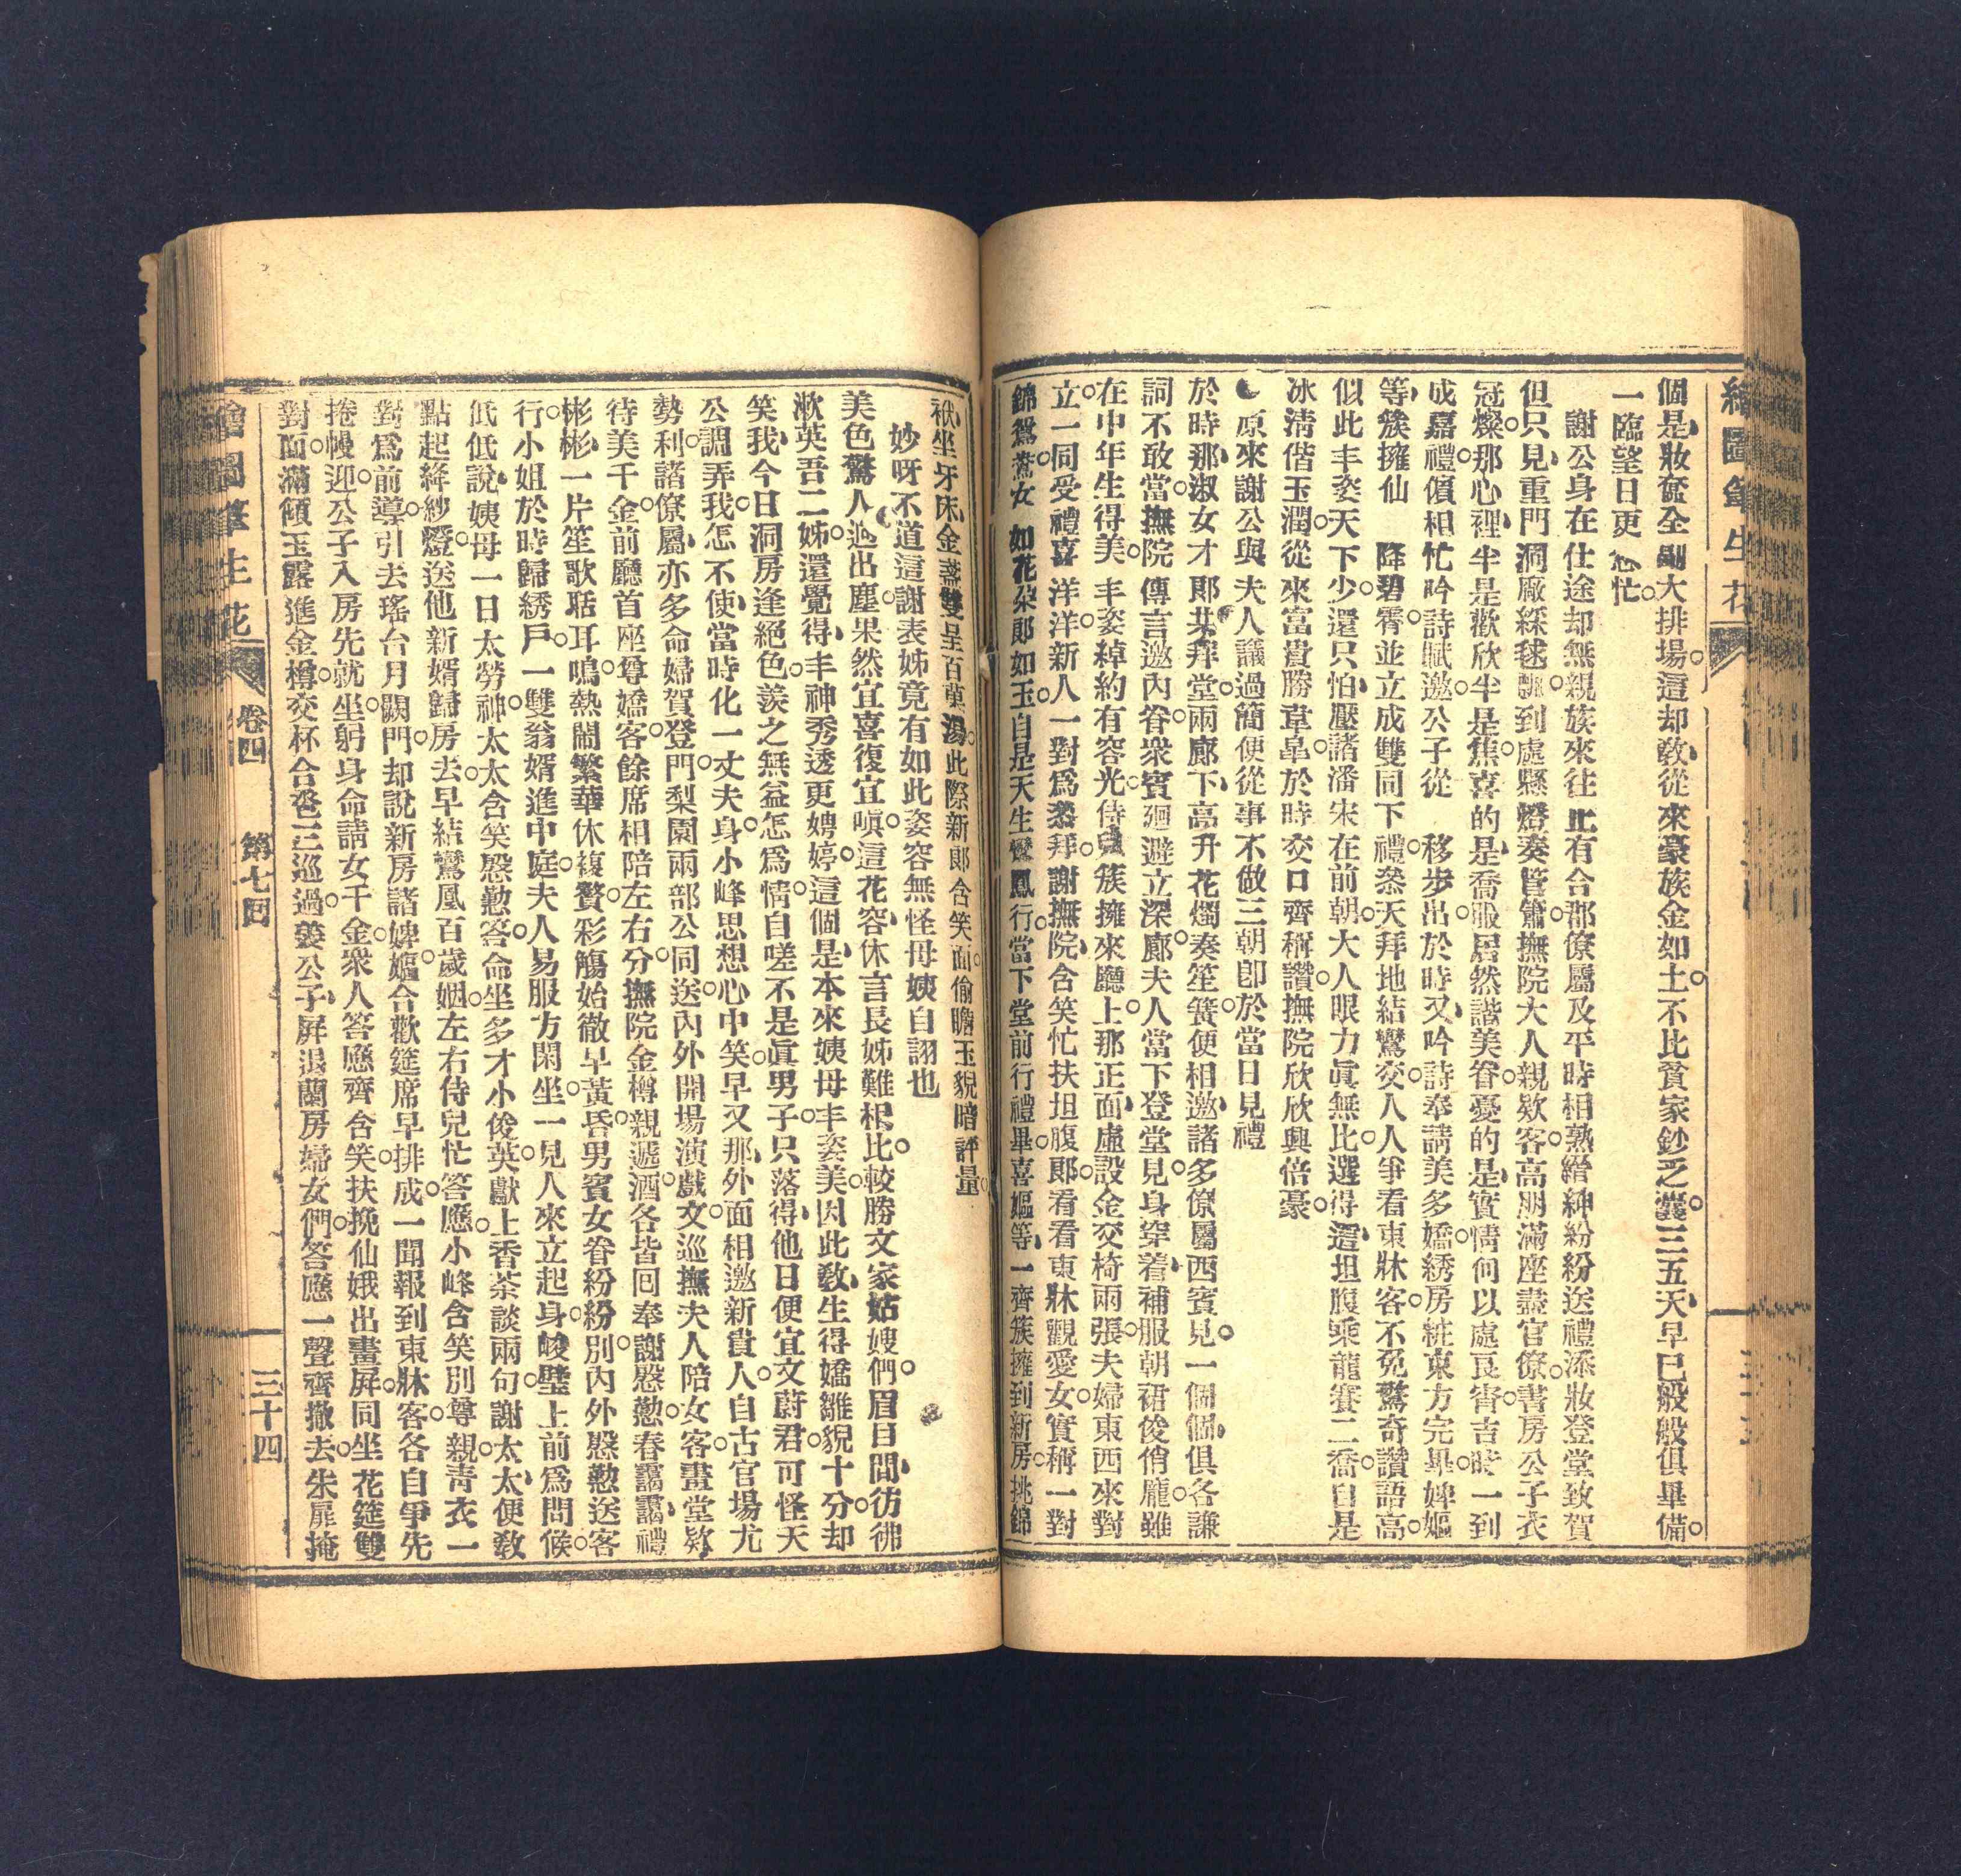 繪圖筆生花
個是妝奩全副大排場這却教從來豪族金如土不比貧家鈔乏囊三五天早已般般俱畢備
一臨望日更怱忙
謝公身在仕途却無親族來往止有合郡僚屬及平時相熟縉紳紛紛送禮添妝登堂致賀
但只見重門洞厰綵毬飄到處懸燈奏管簫撫院大人親欵客高朋滿座盡官僚書房公子衣
冠燦那心裡半是歡欣半是焦喜的是喬服居然諧美眷憂的是實情何以處良宵吉時一到
成嘉禮儐相忙吟詩賦邀公子從 移步出於時又吟詩奉請美多嬌綉房粧束方完畢婢嫗
等簇擁仙 降碧霄並立成雙同下禮叅天拜地結鸞交人人爭看東牀客不免驚奇讚語高
似此丰姿天下少還只怕壓諸潘宋在前朝大人眼力眞無比選得這坦腹乘龍賽二喬自是
冰清偕玉潤從來富貴勝草皐於時交口齊稱讚撫院欣欣興倍豪
原來謝公與夫人議過簡便從事不做三朝卽於當日見禮
於時那淑女才郞共拜堂兩廊下高升花燭奏笙簧便相邀諸多僚屬西賓見一個個俱各謙
詞不敢當撫院傳言邀內眷衆賓廻避立深廊夫人當下登堂見身穿着補服朝裙俊俏龐雖
在中年生得美丰姿綽約有容光侍兒簇擁來廳上那正面虛設金交椅兩張夫婦東西來對
立一同受禮喜洋洋新人一對爲叅拜謝撫院含笑忙扶坦腹郞看看東牀觀愛女實稱一對
錦鴛鴦女如花朵郞如玉自是天生鸞鳳行當下堂前行禮畢喜嫗等一齊簇擁到新房挑錦
袱坐牙床金盞雙呈百菓湯此際新郞含笑面偷瞻玉貌暗評量
妙呀不道這謝表姊竟有如此姿容無怪母姨自詡也
美色驚人逈出塵果然宜喜復宜嗔這花容休言長姊難相比較勝文家姑嫂們眉目間彷彿
漱英吾二姊還覺得丰神秀透更娉婷這個是本來姨母丰姿美因此教生得嬌雛貌十分却
笑我今日洞房逢絕色羨之無益怎爲情自嗟不是眞男子只落得他日便宜文蔚君可怪天
公調弄我怎不使當時化一丈夫身小峰思想心中笑早又那外面相邀新貴人自古官場尤
勢利諸僚屬亦多命婦賀登門梨園兩部公同送內外開場演戲文巡撫夫人陪女客畫堂欵
待美千金前廳首座尊嬌客餘席相陪左右分撫院金樽親遞酒各皆回奉謝慇懃春靄靄禮
彬彬一片笙歌聒耳鳴熱鬧繁華休複贅彩觴始徹早黃昏男賓女眷紛紛別內外慇懃送客
行小姐於時歸綉戶一雙翁婿進中庭夫人易服方閑坐一見人來立起身峻璧上前爲問候
低低說姨母一日太勞神太太含笑慇懃答命坐多才小俊英獻上香茶談兩句謝太太便教
點起絳紗燈送他新婿歸房去早結鸞凰百歲姻左右侍兒忙答應小峰含笑別尊親靑衣一
對爲前導引去瑤台月闕門却說新房諸婢嫗合歡筵席早排成一聞報到東牀客各自爭先
捲幔迎公子入房先就坐躬身命請女千金衆人答應齊含笑扶挽仙娥出畫屛同坐花筵雙
對面滿傾玉露進金樽交杯合卺三巡過姜公子屛退蘭房婦女們答應一聲齊撤去朱扉掩
繪圖筆生花
卷四
第七回
三十四